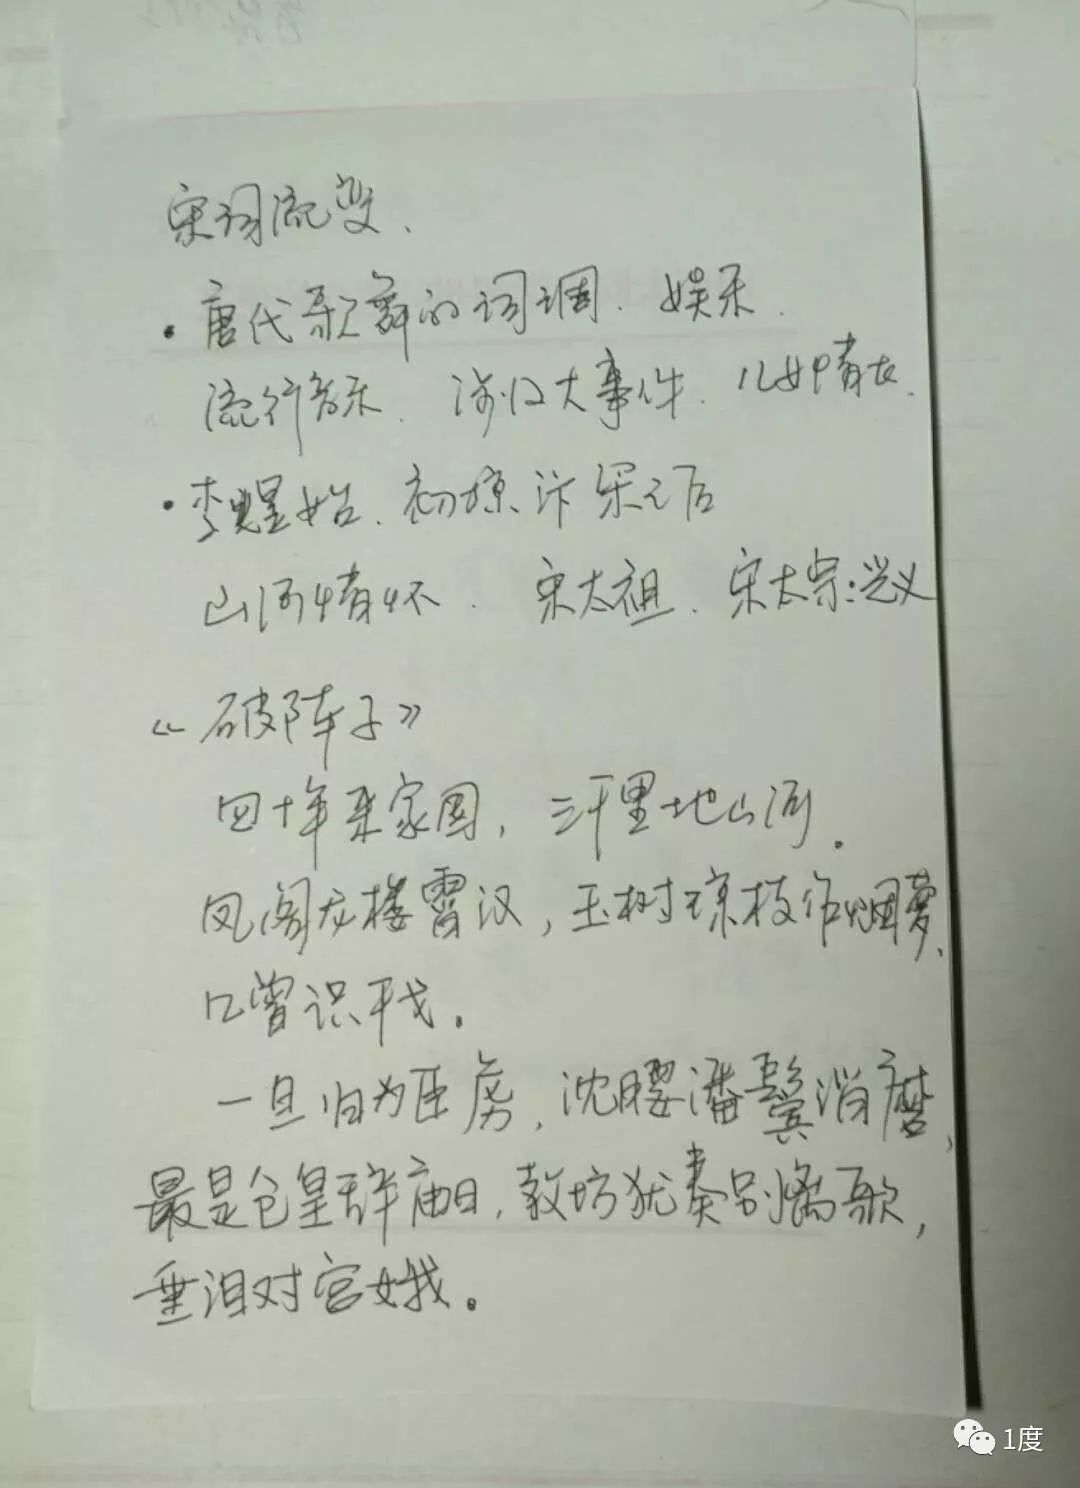 宋词流变.
·唐代歌舞的词调. 娱乐.
流行音乐. 涉及大事件. 儿女情长.
·李煜始. 初掠汴梁之后
山河情怀. 宋太祖. 宋太宗:光义
《破阵子》
四十年来家国, 三千里地山河.
凤阁龙楼霄汉, 玉树琼枝作烟萝,
几曾识干戈.
一旦归为臣虏, 沈腰潘鬓消磨,
最是仓皇辞庙日, 教坊犹奏别离歌,
垂泪对宫娥。
1度